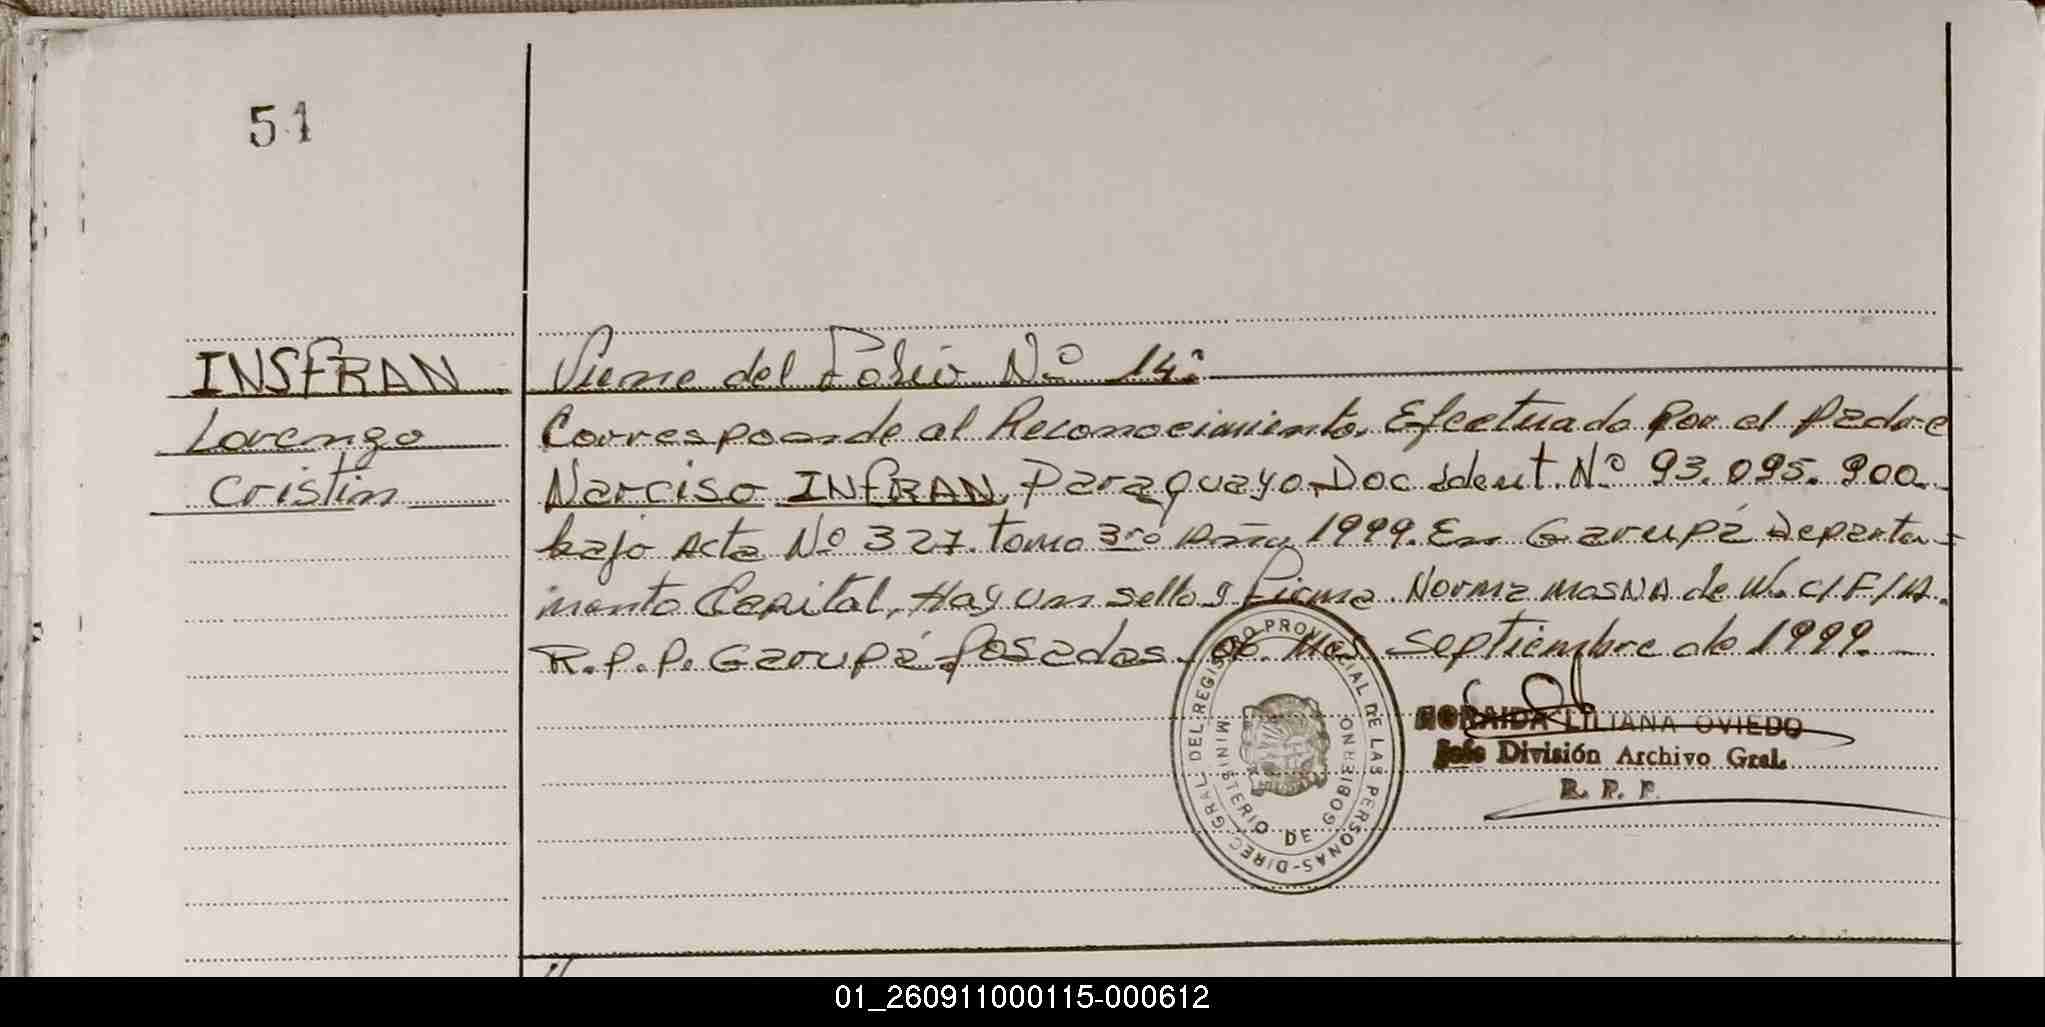 51
INSFRAN
Lorenzo
Cristin
Viene del Folio Nº 14:
Corresponde al Reconocimiento Efectuado por el padre
Narciso INFRAN, Paraguayo, Doc ident. Nº 93.095.900.
bajo Acta Nº 327. tomo 3ro Año 1999. En Garupá Departa-
mento Capital, Hay un sello y Firma. Norma de W. C/F/A.
R.P.P. Garupá. Posadas, Septiembre de 1999.
DIREC. GRAL. DEL REGISTRO PROVINCIAL DE LAS PERSONAS
MINISTERIO DE GOBIERNO
LILIANA OVIEDO
Jefe División Archivo Gral.
R. P. P.
01_260911000115-000612